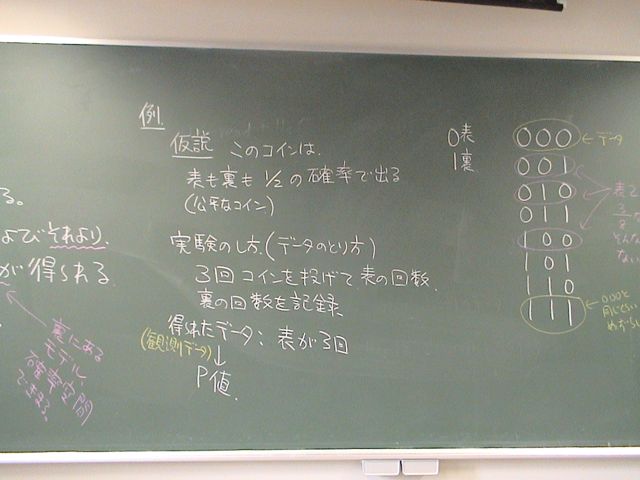 る。
よびそれより
が得られる
裏にある
モデル、
確率空間
できまる。
例.
仮説 このコインは、
表も裏も 1/2 の確率で出る
(公平なコイン)
実験のし方. (データのとり方)
3回コインを投げて表の回数、
裏の回数を記録
得れたデータ: 表が3回
(観測データ)
↓
P値.
0表
1裏
000 ← データ
001
010
011
100
101
110
111
表2
3/8
そんな
ない
← 000と
同じくらい
めずらしい